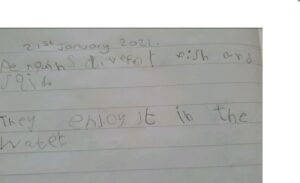 21st January 2021.
Penguins divverent fish and
sqid
They enjoy it in the
water